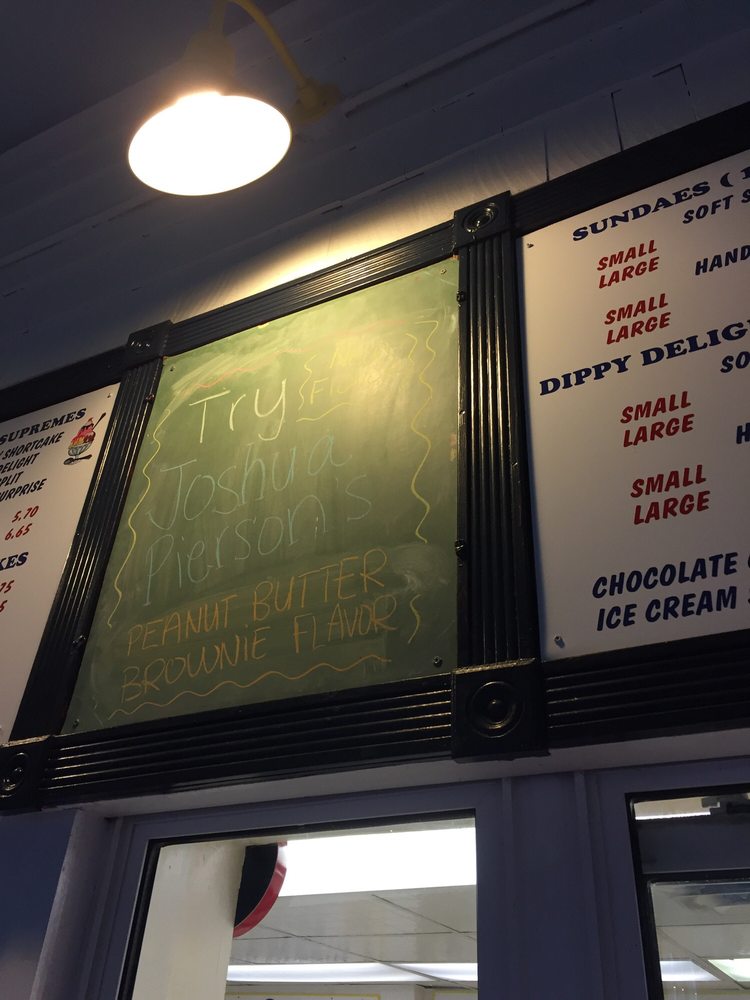 SUPREMES
SHORTCAKE
DELIGHT
SPLIT
SURPRISE
5.70
6.65
Try
Joshua
Pierson's
PEANUT BUTTER
BROWNIE FLAVOR
SUNDAES (
SOFT
SMALL
LARGE
HAND
SMALL
LARGE
DIPPY DELIG
SO
SMALL
LARGE
H
SMALL
LARGE
CHOCOLATE
ICE CREAM